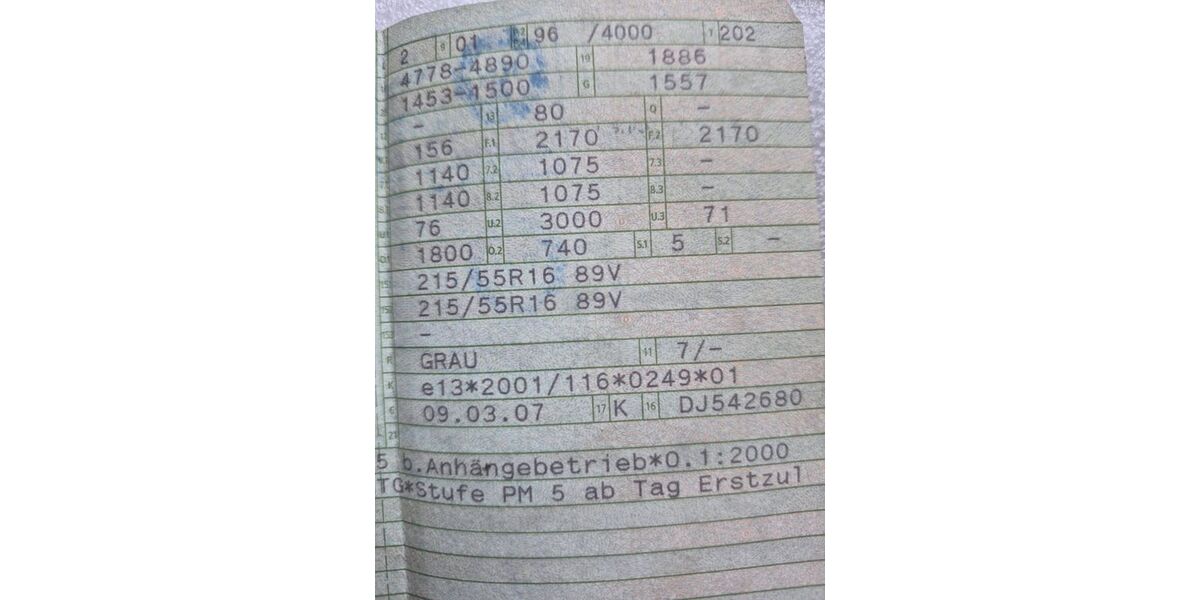 2 9 01 P.2 P.4 96 /4000 T 202
4778-4890 19 1886
1453-1500 G 1557
- 13 80 Q -
156 F.1 2170 F.2 2170
1140 7.2 1075 7.3 -
1140 8.2 1075 8.3 -
76 U.2 3000 U.3 71
1800 O.2 740 S.1 5 S.2 -
215/55R16 89V
215/55R16 89V
-
R GRAU 11 7/-
K e13*2001/116*0249*01
6 09.03.07 17 K 16 DJ542680
21
5 b.Anhängebetrieb*0.1:2000
TG*Stufe PM 5 ab Tag Erstzul